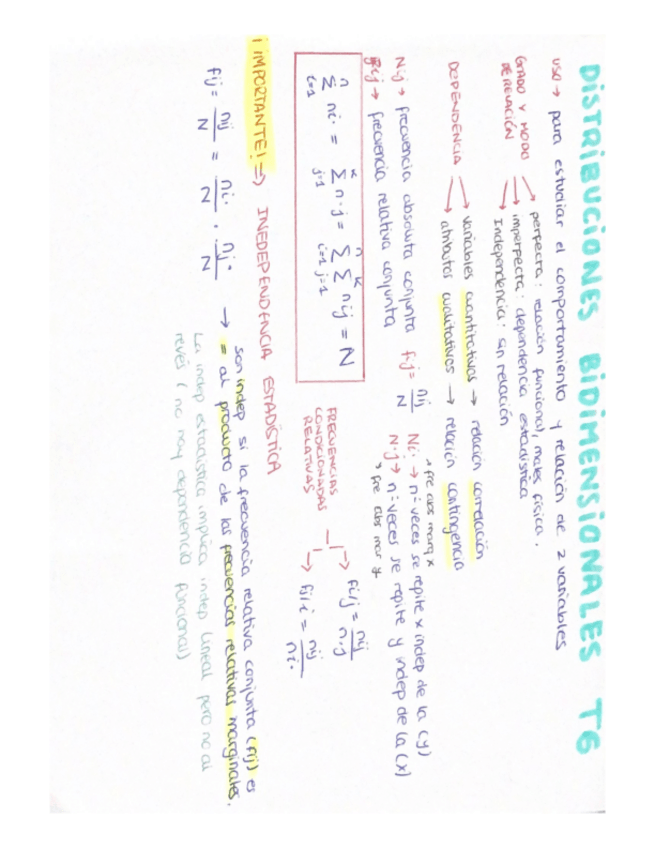 DISTRIBUCIONES BIDIMENSIONALES T6
USO → para estudiar el comportamiento y relación de 2 variables
GRADO Y MODO DE RELACIÓN
→ perfecta: relación funcional, mates física.
→ imperfecta: dependencia estadística
→ Independencia: sin relación
DEPENDENCIA
→ variables cuantitativas → relación correlación
→ atributos cualitativos → relación contingencia
Nij → frecuencia absoluta conjunta
fij → frecuencia relativa conjunta
fij = nij / N
→ fre abs marg x
Ni· → nº veces se repite x indep de la (y)
N·j → nº veces se repite y indep de la (x)
→ fre abs mar y
n Σ i=1 ni· = k Σ j=1 n·j = n Σ i=1 k Σ j=1 nij = N
FRECUENCIAS CONDICIONADAS RELATIVAS
→ fi/j = nij / n·j
→ fj/i = nij / ni·
¡IMPORTANTE! → INEDEPENDENCIA ESTADÍSTICA
fij = nij / N = ni· / N · nj· / N
→ son indep si la frecuencia relativa conjunta (nij) es
= al producto de las frecuencias relativas marginales.
La indep estadística implica indep lineal pero no al
revés (no hay dependencia funcional)